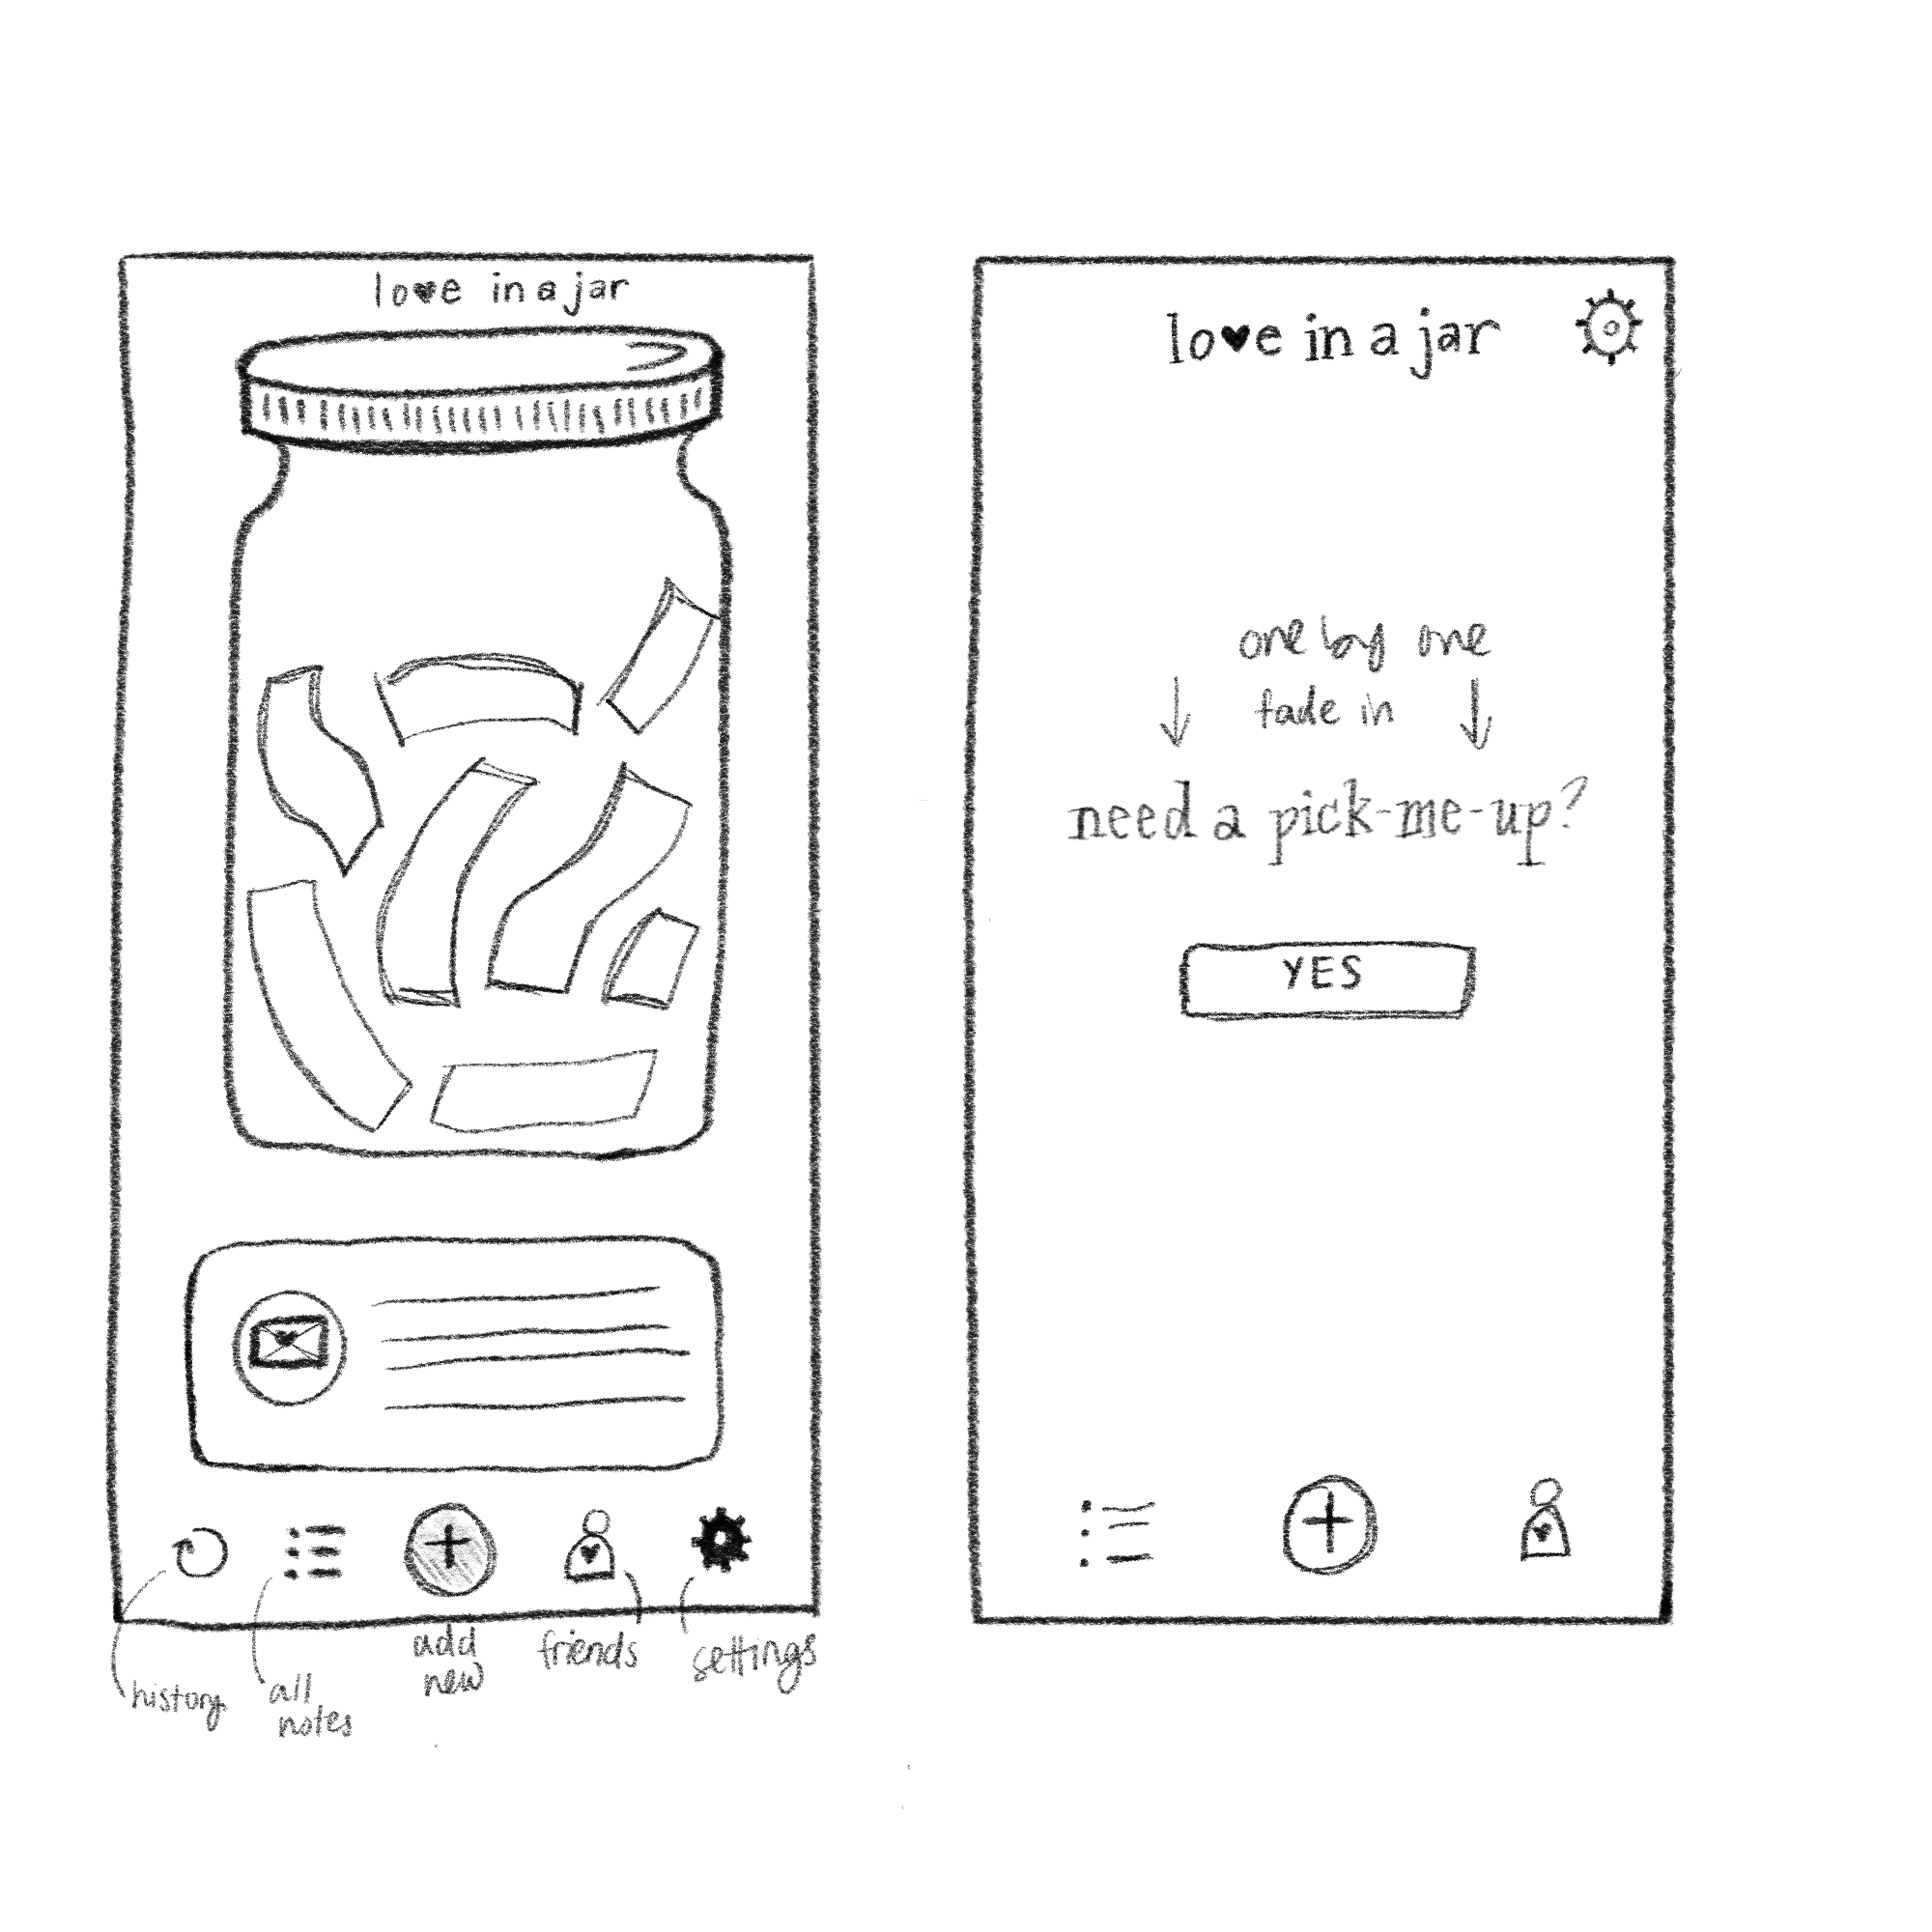 lo♥e in a jar
history
all
notes
add
new
friends
settings
lo♥e in a jar
one by one
fade in
need a pick-me-up?
YES